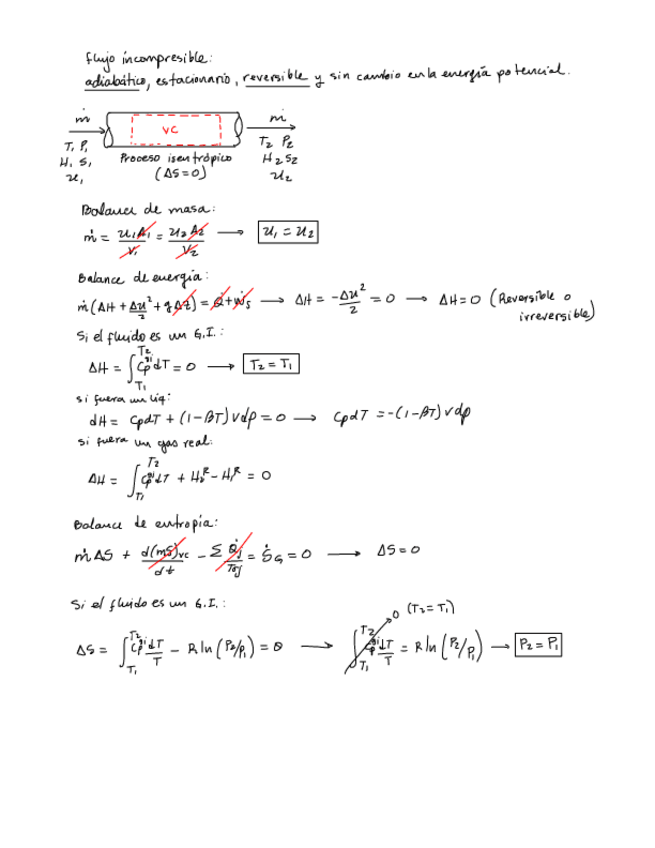 flujo incompresible:
adiabático, estacionario, reversible y sin cambio en la energía potencial.
ṁ
VC
ṁ
T₁ P₁
H₁ S₁
u₁
Proceso isentrópico
(ΔS=0)
T₂ P₂
H₂ S₂
u₂
Balance de masa:
ṁ = u₁A₁/V₁ = u₂A₂/V₂ → u₁ = u₂
Balance de energía:
ṁ(ΔH + Δu²/2 + gΔz) = Q̇ + Ẇs → ΔH = -Δu²/2 = 0 → ΔH = 0 (Reversible o
irreversible)
Si el fluido es un G.I.:
ΔH = ∫_{T₁}^{T₂} Cp^{gi} dT = 0 → T₂ = T₁
si fuera un líq:
dH = CpdT + (1-βT)Vdp = 0 → CpdT = -(1-βT)Vdp
si fuera un gas real:
ΔH = ∫_{T₁}^{T₂} Cp^{gi} dT + H₂^R - H₁^R = 0
Balance de entropía:
ṁΔS + d(mS)vc/dt - Σ Q̇j/Tσj = ṠG = 0 → ΔS = 0
Si el fluido es un G.I.:
ΔS = ∫_{T₁}^{T₂} Cp^{gi} dT/T - R ln(P₂/P₁) = 0 → ∫_{T₁}^{T₂} Cp^{gi} dT/T = R ln(P₂/P₁) → P₂ = P₁
0 (T₂=T₁)